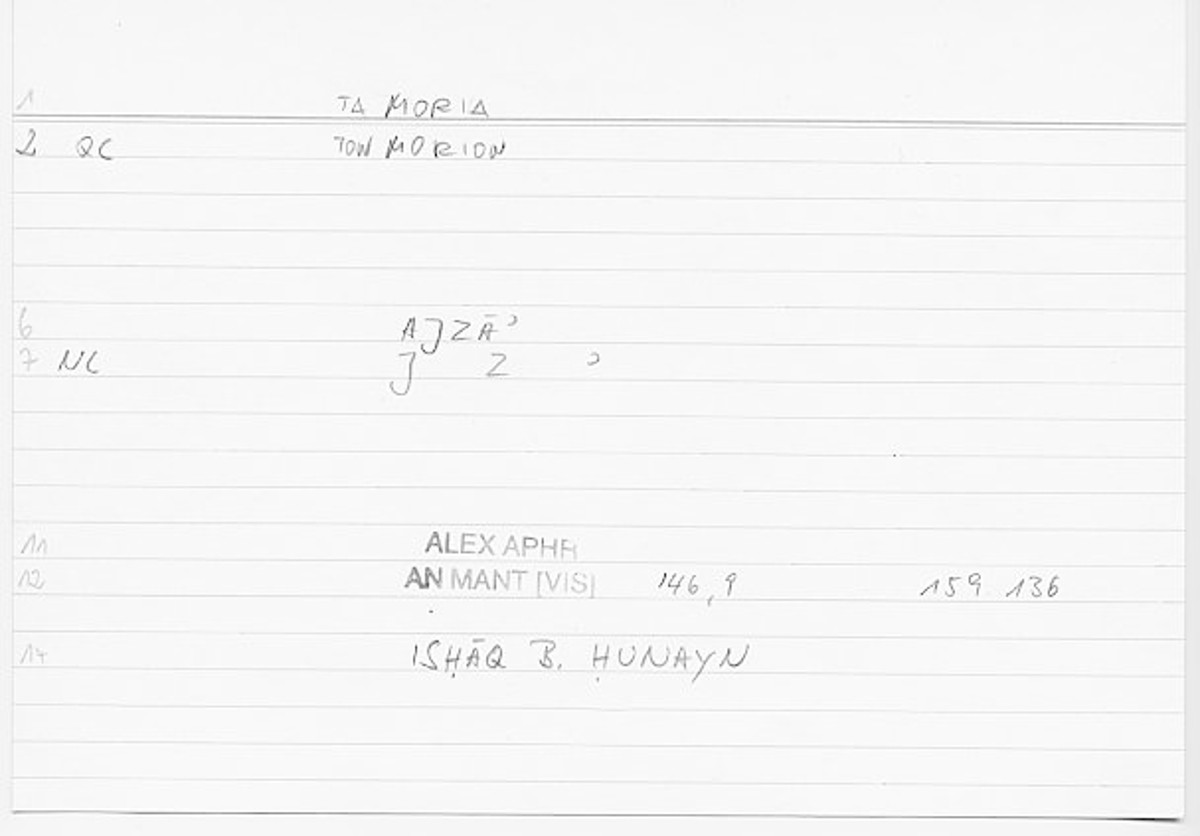 1 TA MORIA
2 QC TON MORION
6 AJZĀʾ
7 NC J Z ʾ
11 ALEX APHR
12 AN MANT [VIS] 146,9 159 136
14 ISḤĀQ B. ḤUNAYN